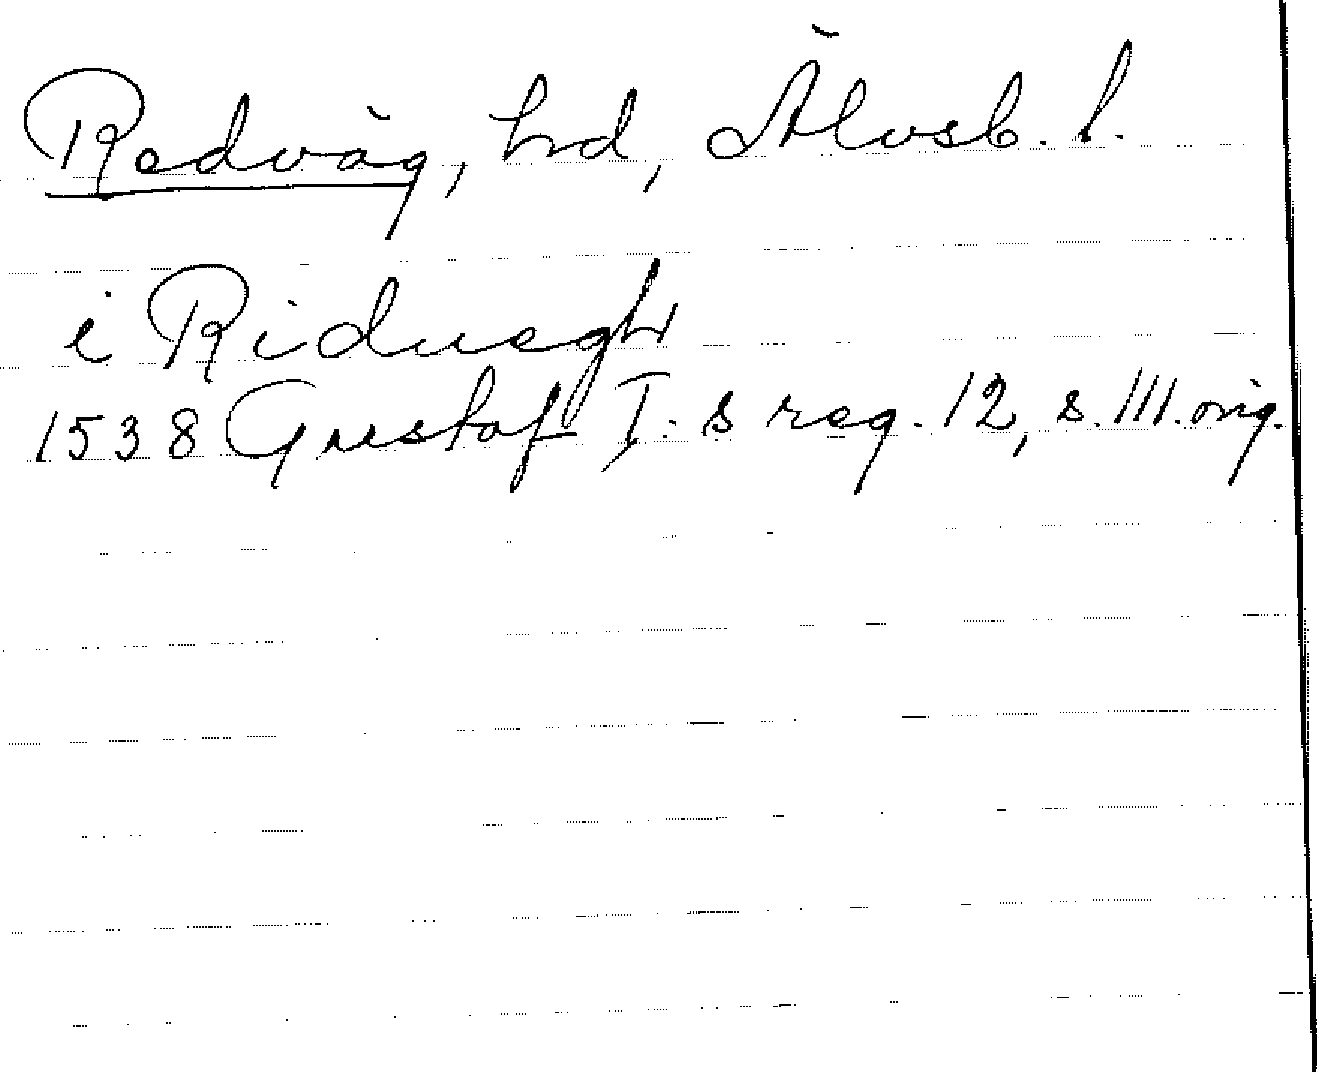 Redväg, hd, Älvsb. l.
i Riduegh
1538 Gustaf I. s reg. 12, s. 111. orig.